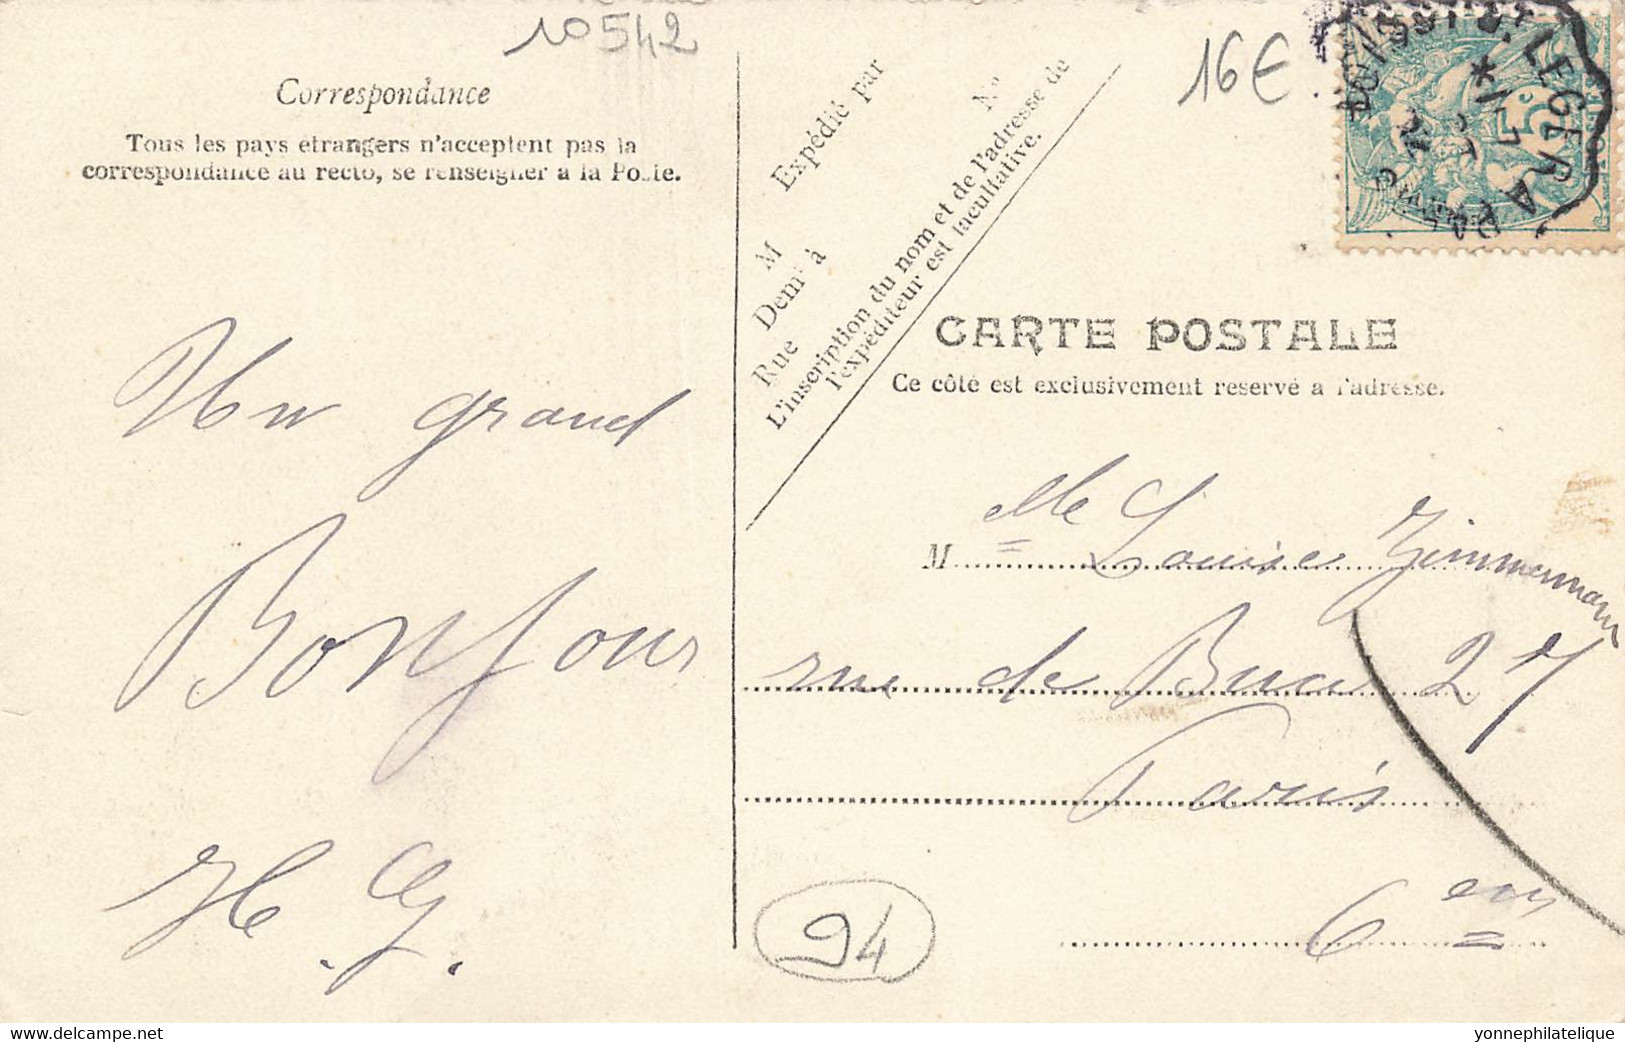 10542
16€
Correspondance
Tous les pays étrangers n'acceptent pas la
correspondance au recto, se renseigner à la Poste.
Expédié par
M
Demt à
Rue
N°
L'inscription du nom et de l'adresse de
l'expéditeur est facultative.
BOISSY-ST-LEGER A PARIS
5c
CARTE POSTALE
Ce côté est exclusivement reservé a l'adresse.
Un grand
Bonjour
H. G.
M elle Louise Zimmermann
rue de Buci 27
Paris
6 em
94
delcampe.net
yonnephilatelique